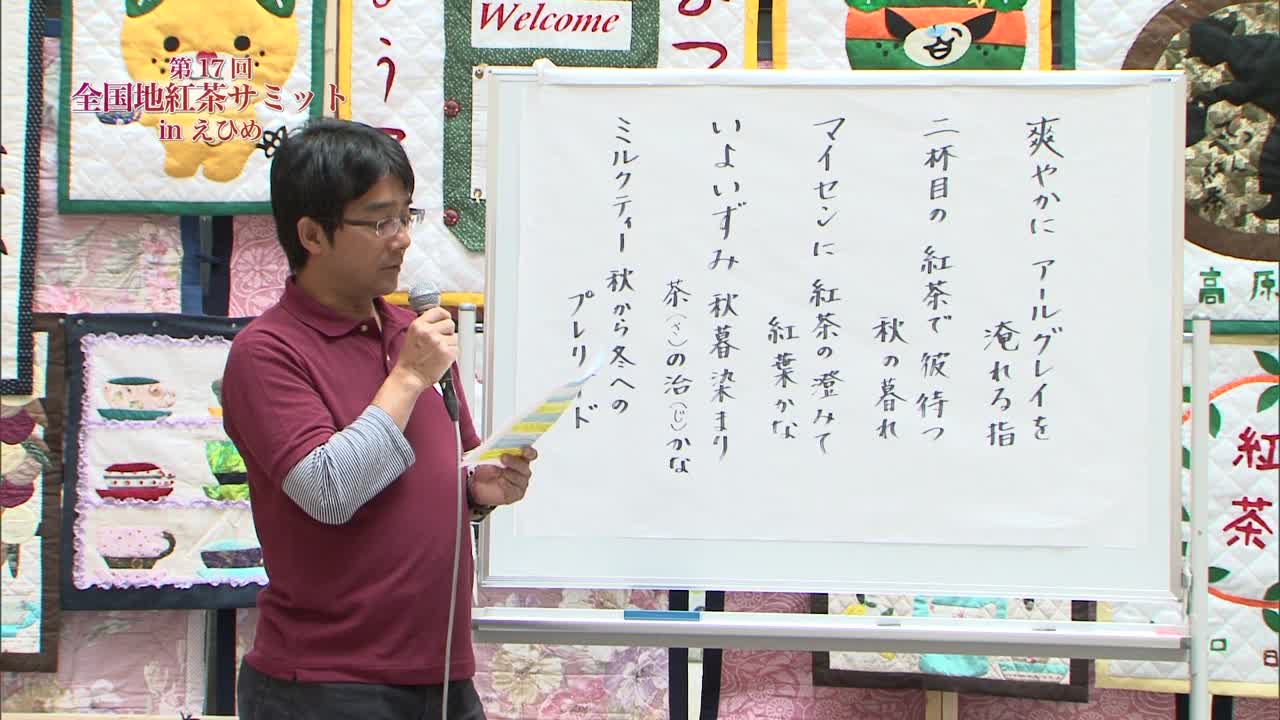 第17回
全国地紅茶サミット
in えひめ
Welcome
まつ
爽やかに アールグレイを
淹れる指
二杯目の 紅茶で彼待つ
秋の暮れ
マイセンに 紅茶の澄みて
紅葉かな
いよいずみ 秋暮染まり
茶(さ)の治(じ)かな
ミルクティー 秋から冬への
プレリュード
高原
紅茶